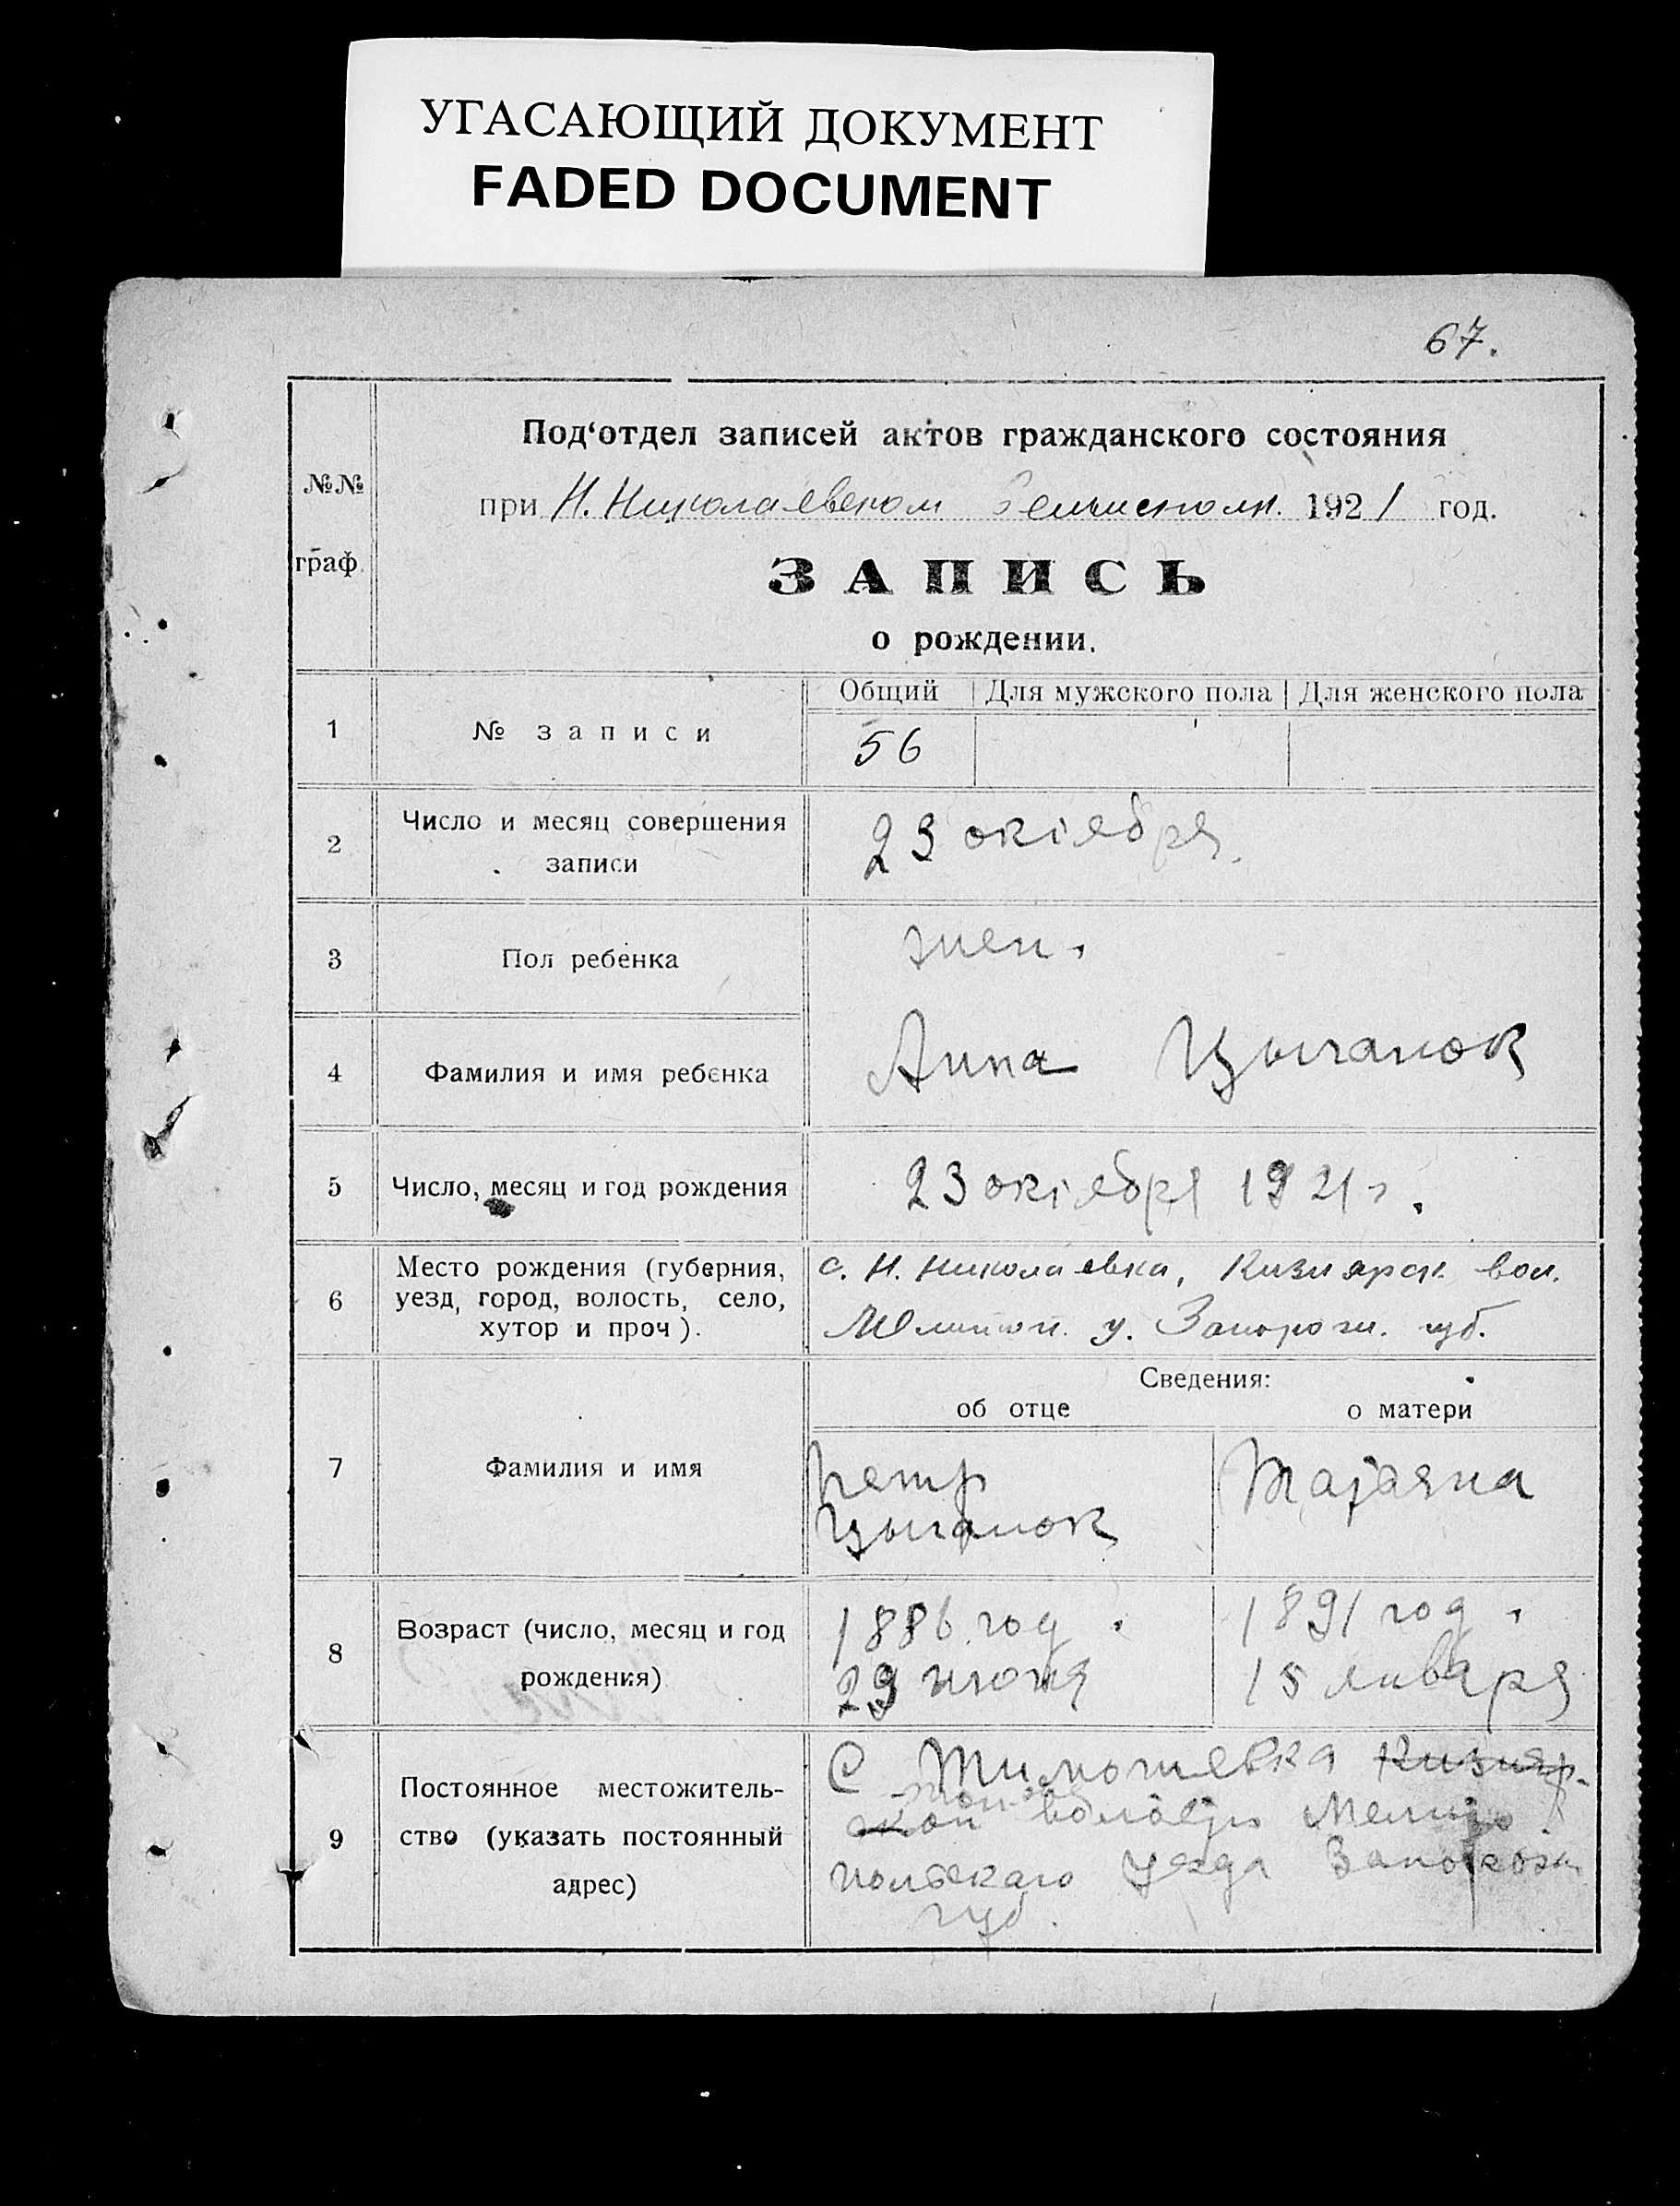 УГАСАЮЩИЙ ДОКУМЕНТ
FADED DOCUMENT
67.
№№
граф.
Под‘отдел записей актов гражданского состояния
при Н. Николаевском 1921 год.
ЗАПИСЬ
о рождении.
1
№ записи
Общий
Для мужского пола
Для женского пола
56
2
Число и месяц совершения
записи
23 октября.
3
Пол ребенка
жен.
4
Фамилия и имя ребенка
Анна Цыганок
5
Число, месяц и год рождения
23 октября 1921 г.
6
Место рождения (губерния,
уезд, город, волость, село,
хутор и проч).
с. Н. Николаевка, Кизиярск. вол.
Мелитоп. у. Запорож. губ.
Сведения:
об отце
о матери
7
Фамилия и имя
Петр
Цыганок
Татаяна
8
Возраст (число, месяц и год
рождения)
1886 год.
29 июня
1891 год.
15 января
9
Постоянное местожитель-
ство (указать постоянный
адрес)
С Тимошевка Кизияр-
ской волости Мелито
польскаго уезда Запорож
губ.